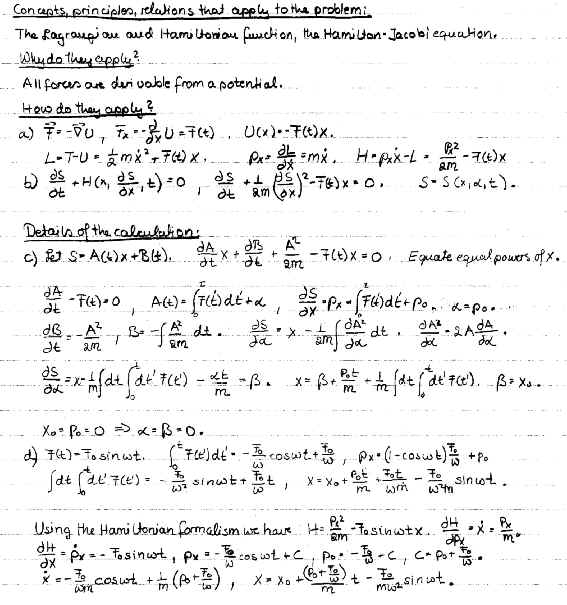 Concepts, principles, relations that apply to the problem:
The Lagrangian and Hamiltonian function, the Hamilton-Jacobi equation.
Why do they apply?
All forces are derivable from a potential.
How do they apply?
a) F⃗ = -∇⃗U, Fx = -∂/∂x U = F(t). U(x) = -F(t)x.
L = T-U = 1/2 mẋ² + F(t)x. px = ∂L/∂ẋ = mẋ. H = pxẋ - L = px²/2m - F(t)x
b) ∂S/∂t + H(x, ∂S/∂x, t) = 0, ∂S/∂t + 1/2m (∂S/∂x)² - F(t)x = 0. S = S(x, α, t).
Details of the calculation:
c) Let S = A(t)x + B(t). ∂A/∂t x + ∂B/∂t + A²/2m - F(t)x = 0. Equate equal powers of x.
∂A/∂t - F(t) = 0, A(t) = ∫₀ᵗ F(t')dt' + α, ∂S/∂x = px = ∫₀ᵗ F(t')dt' + p₀. α = p₀.
∂B/∂t = -A²/2m, B = -∫ A²/2m dt. ∂S/∂α = x - 1/2m ∫ ∂A²/∂α dt. ∂A²/∂α = 2A ∂A/∂α.
∂S/∂α = x - 1/m ∫dt ∫₀ᵗ dt' F(t') - αt/m = β. x = β + p₀t/m + 1/m ∫dt ∫₀ᵗ dt' F(t'). β = x₀.
x₀ = p₀ = 0 ⇒ α = β = 0.
d) F(t) = F₀ sinωt. ∫₀ᵗ F(t')dt' = -F₀/ω cosωt + F₀/ω, px = (1-cosωt)F₀/ω + p₀
∫dt ∫₀ᵗ dt' F(t') = -F₀/ω² sinωt + F₀/ω t, x = x₀ + p₀t/m + F₀t/ωm - F₀/ω²m sinωt.
Using the Hamiltonian formalism we have: H = px²/2m - F₀ sinωt x. ∂H/∂px = ẋ = px/m.
∂H/∂x = ṗx = -F₀ sinωt, px = -F₀/ω cosωt + C, p₀ = -F₀/ω - C, C = p₀ + F₀/ω.
ẋ = -F₀/ωm cosωt + 1/m (p₀ + F₀/ω), x = x₀ + (p₀ + F₀/ω)/m t - F₀/mω² sinωt.